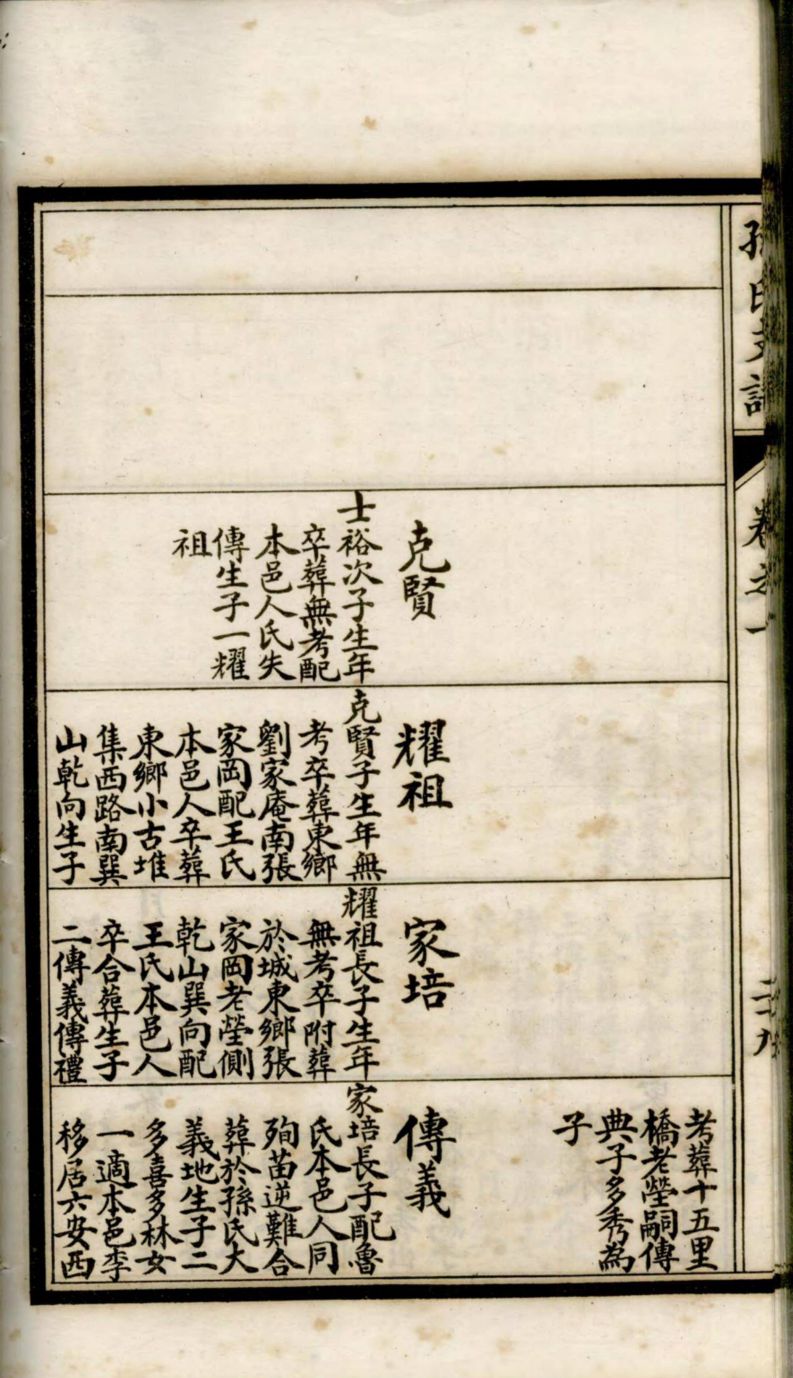 孫氏支譜
卷之一
二九
克賢
士裕次子生年
卒葬無考配
本邑人氏失
傳生子一耀
祖
耀祖
克賢子生年無
考卒葬東鄉
劉家庵南張
家岡配王氏
本邑人卒葬
東鄉小古堆
集西路南巽
山乾向生子
家培
耀祖長子生年
無考卒附葬
於城東鄉張
家岡老塋側
乾山巽向配
王氏本邑人
卒合葬生子
二傳義傳禮
考葬十五里
橋老塋嗣傳
典子多秀為
子
傳義
家培長子配魯
氏本邑人同
殉苗逆難合
葬於孫氏大
義地生子二
多喜多林女
一適本邑李
移居六安西